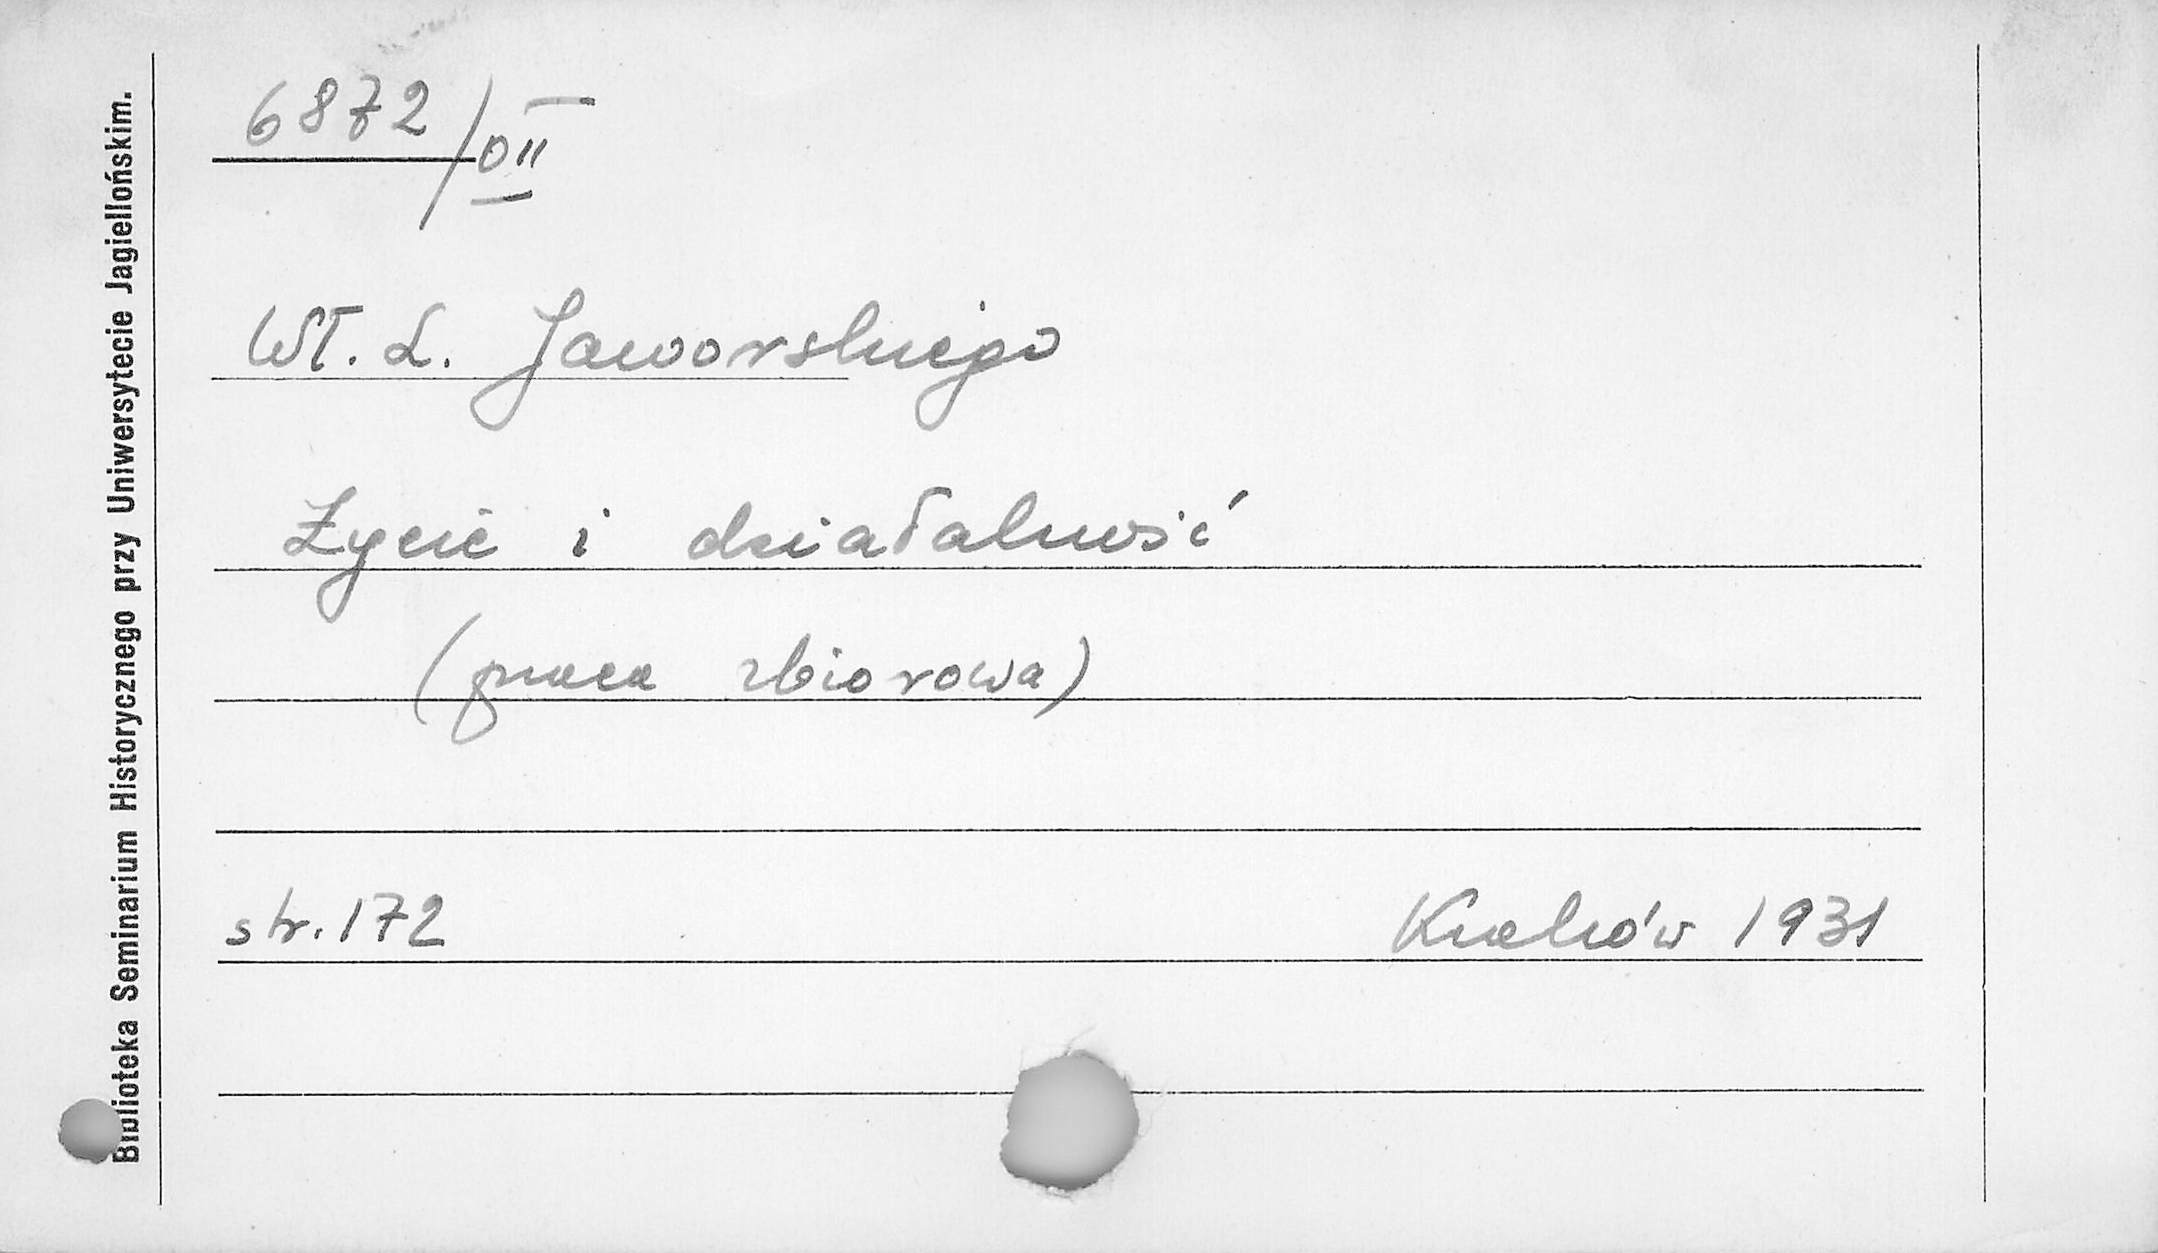 6872/DII
Wł. L. Jaworskiego
Życie i działalność
(praca zbiorowa)
str. 172 Kraków 1931
Biblioteka Seminarium Historycznego przy Uniwersytecie Jagiellońskim.